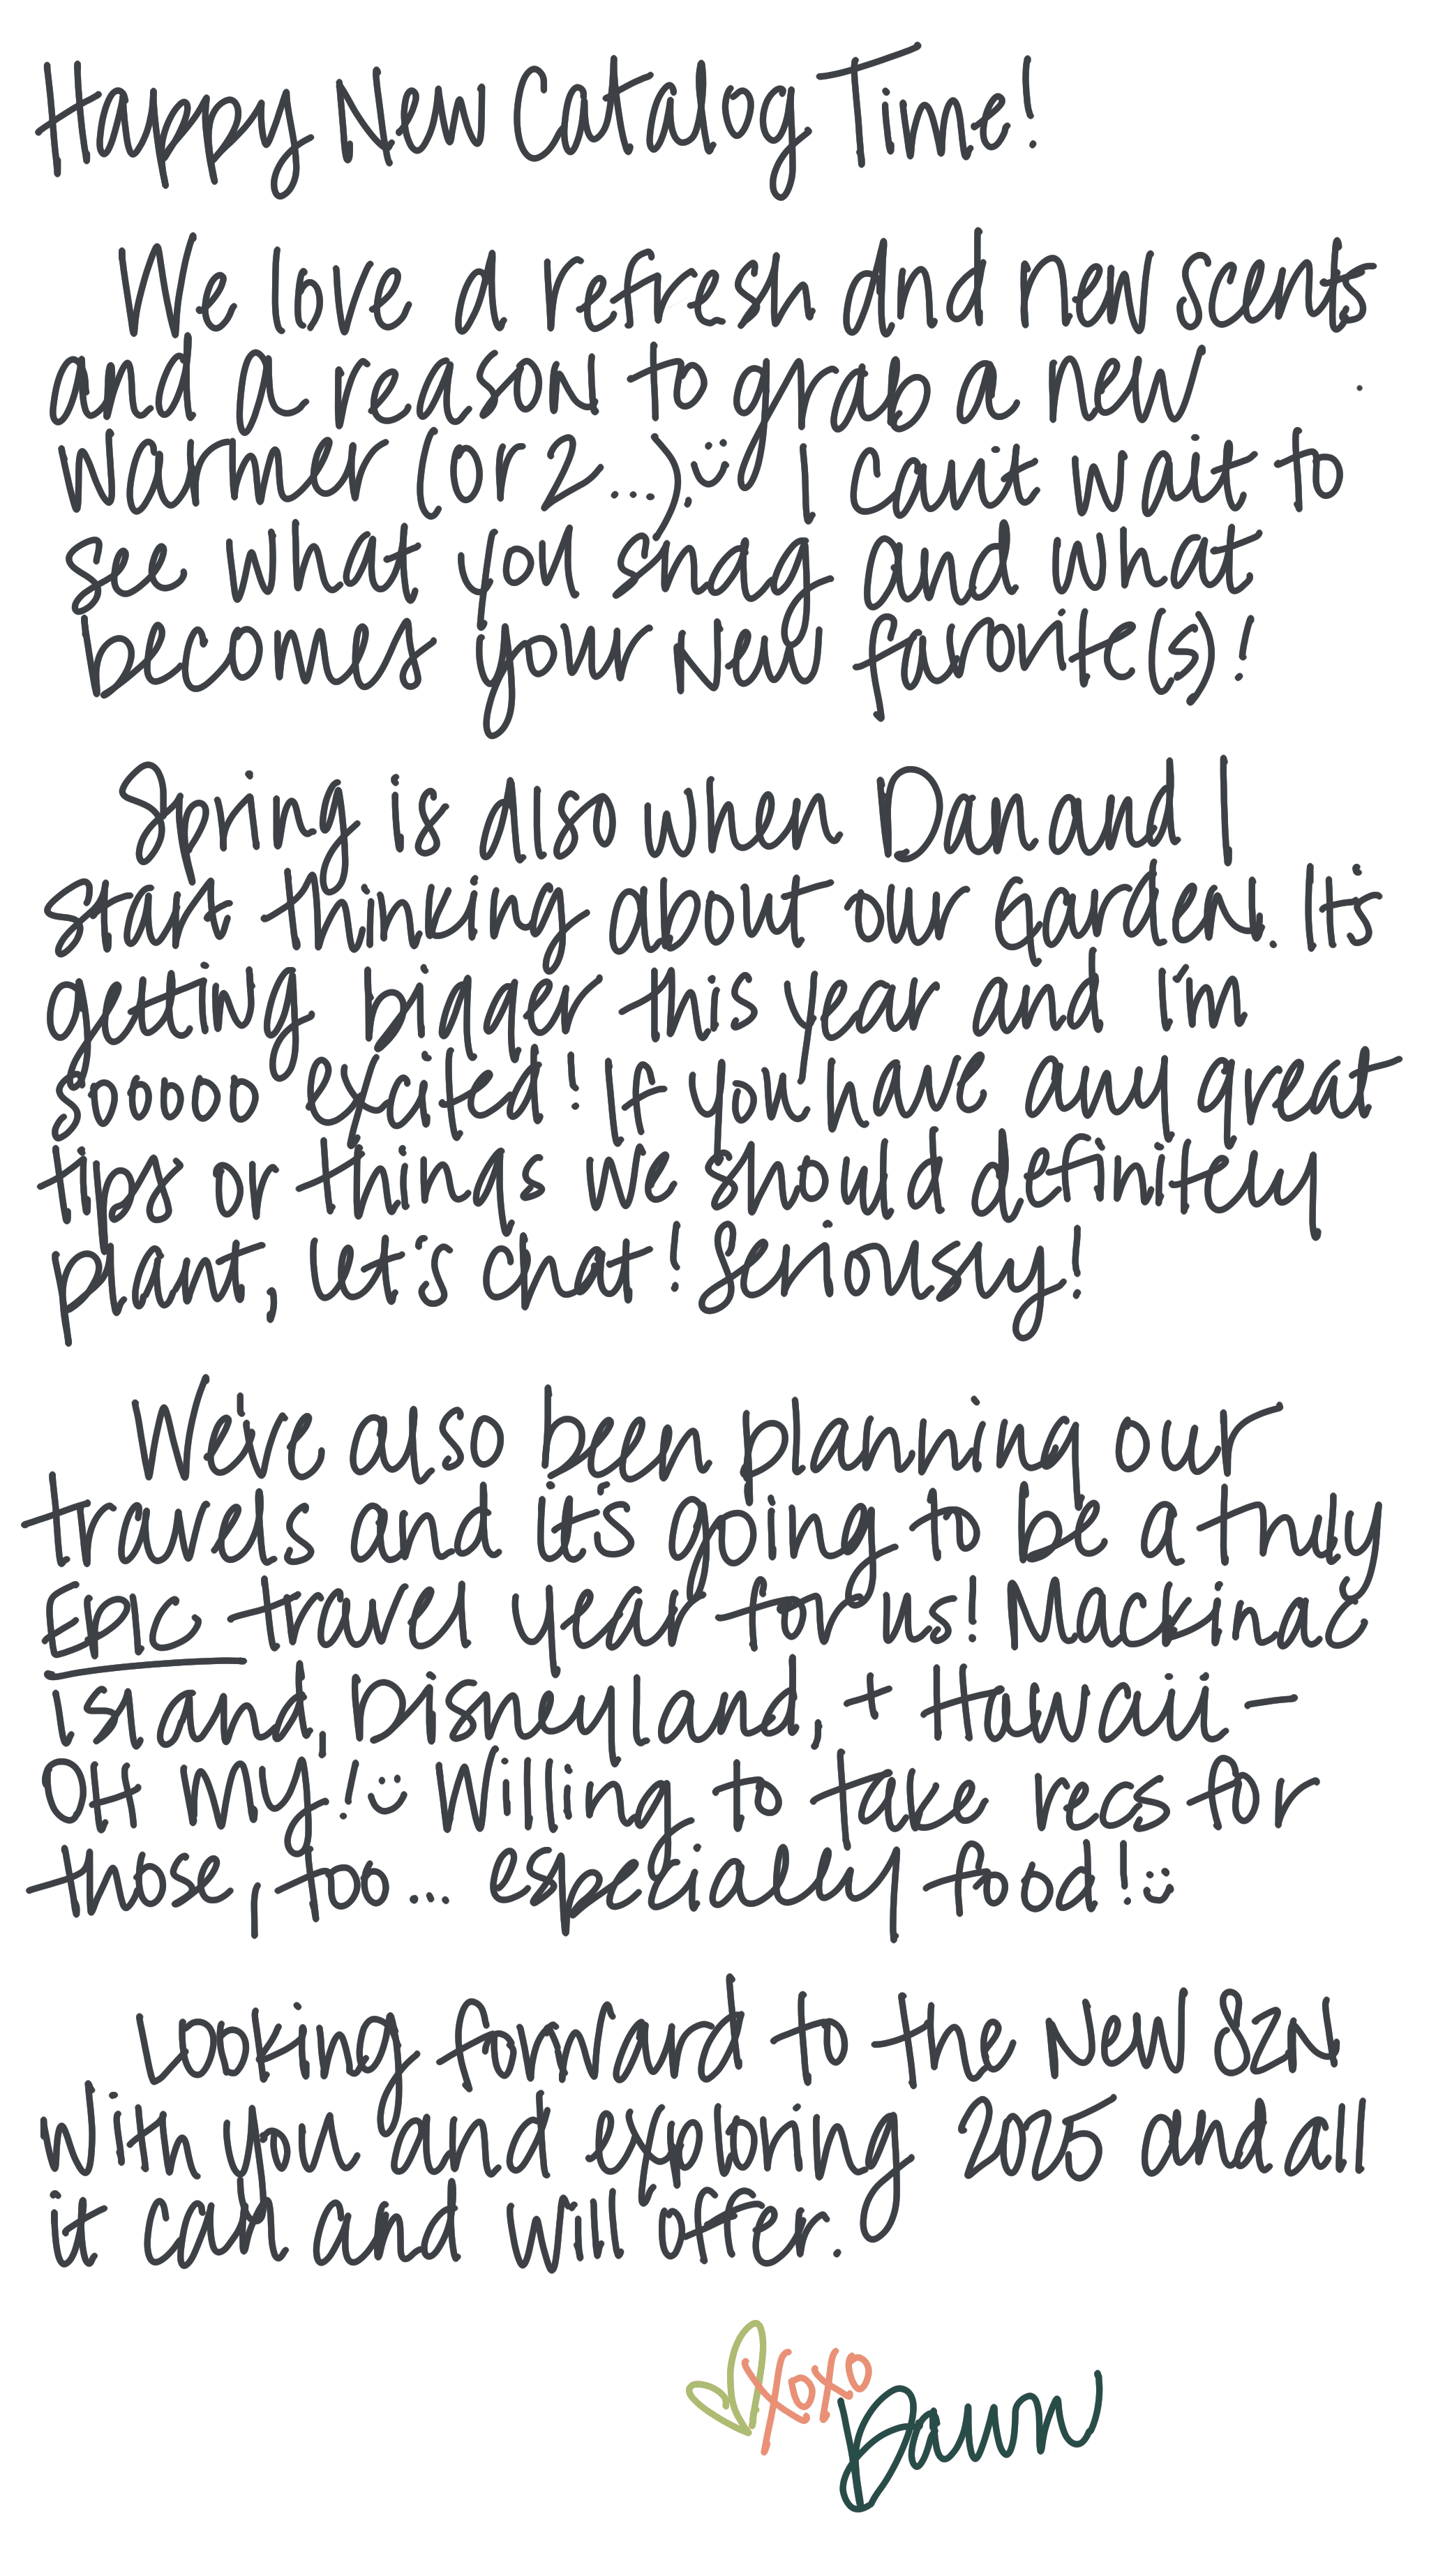 Happy New Catalog Time!
We love a refresh and new scents
and a reason to grab a new
warmer (or 2...). :) I can't wait to
see what you snag and what
becomes your new favorite(s)!
Spring is also when Dan and I
start thinking about our garden. It's
getting bigger this year and I'm
sooooo excited! If you have any great
tips or things we should definitely
plant, let's chat! Seriously!
We've also been planning our
travels and it's going to be a truly
EPIC travel year for us! Mackinac
Island, Disneyland, + Hawaii -
OH MY! :) Willing to take recs for
those, too... especially food! :)
Looking forward to the new SZN
with you and exploring 2025 and all
it can and will offer.
XOXO
Dawn